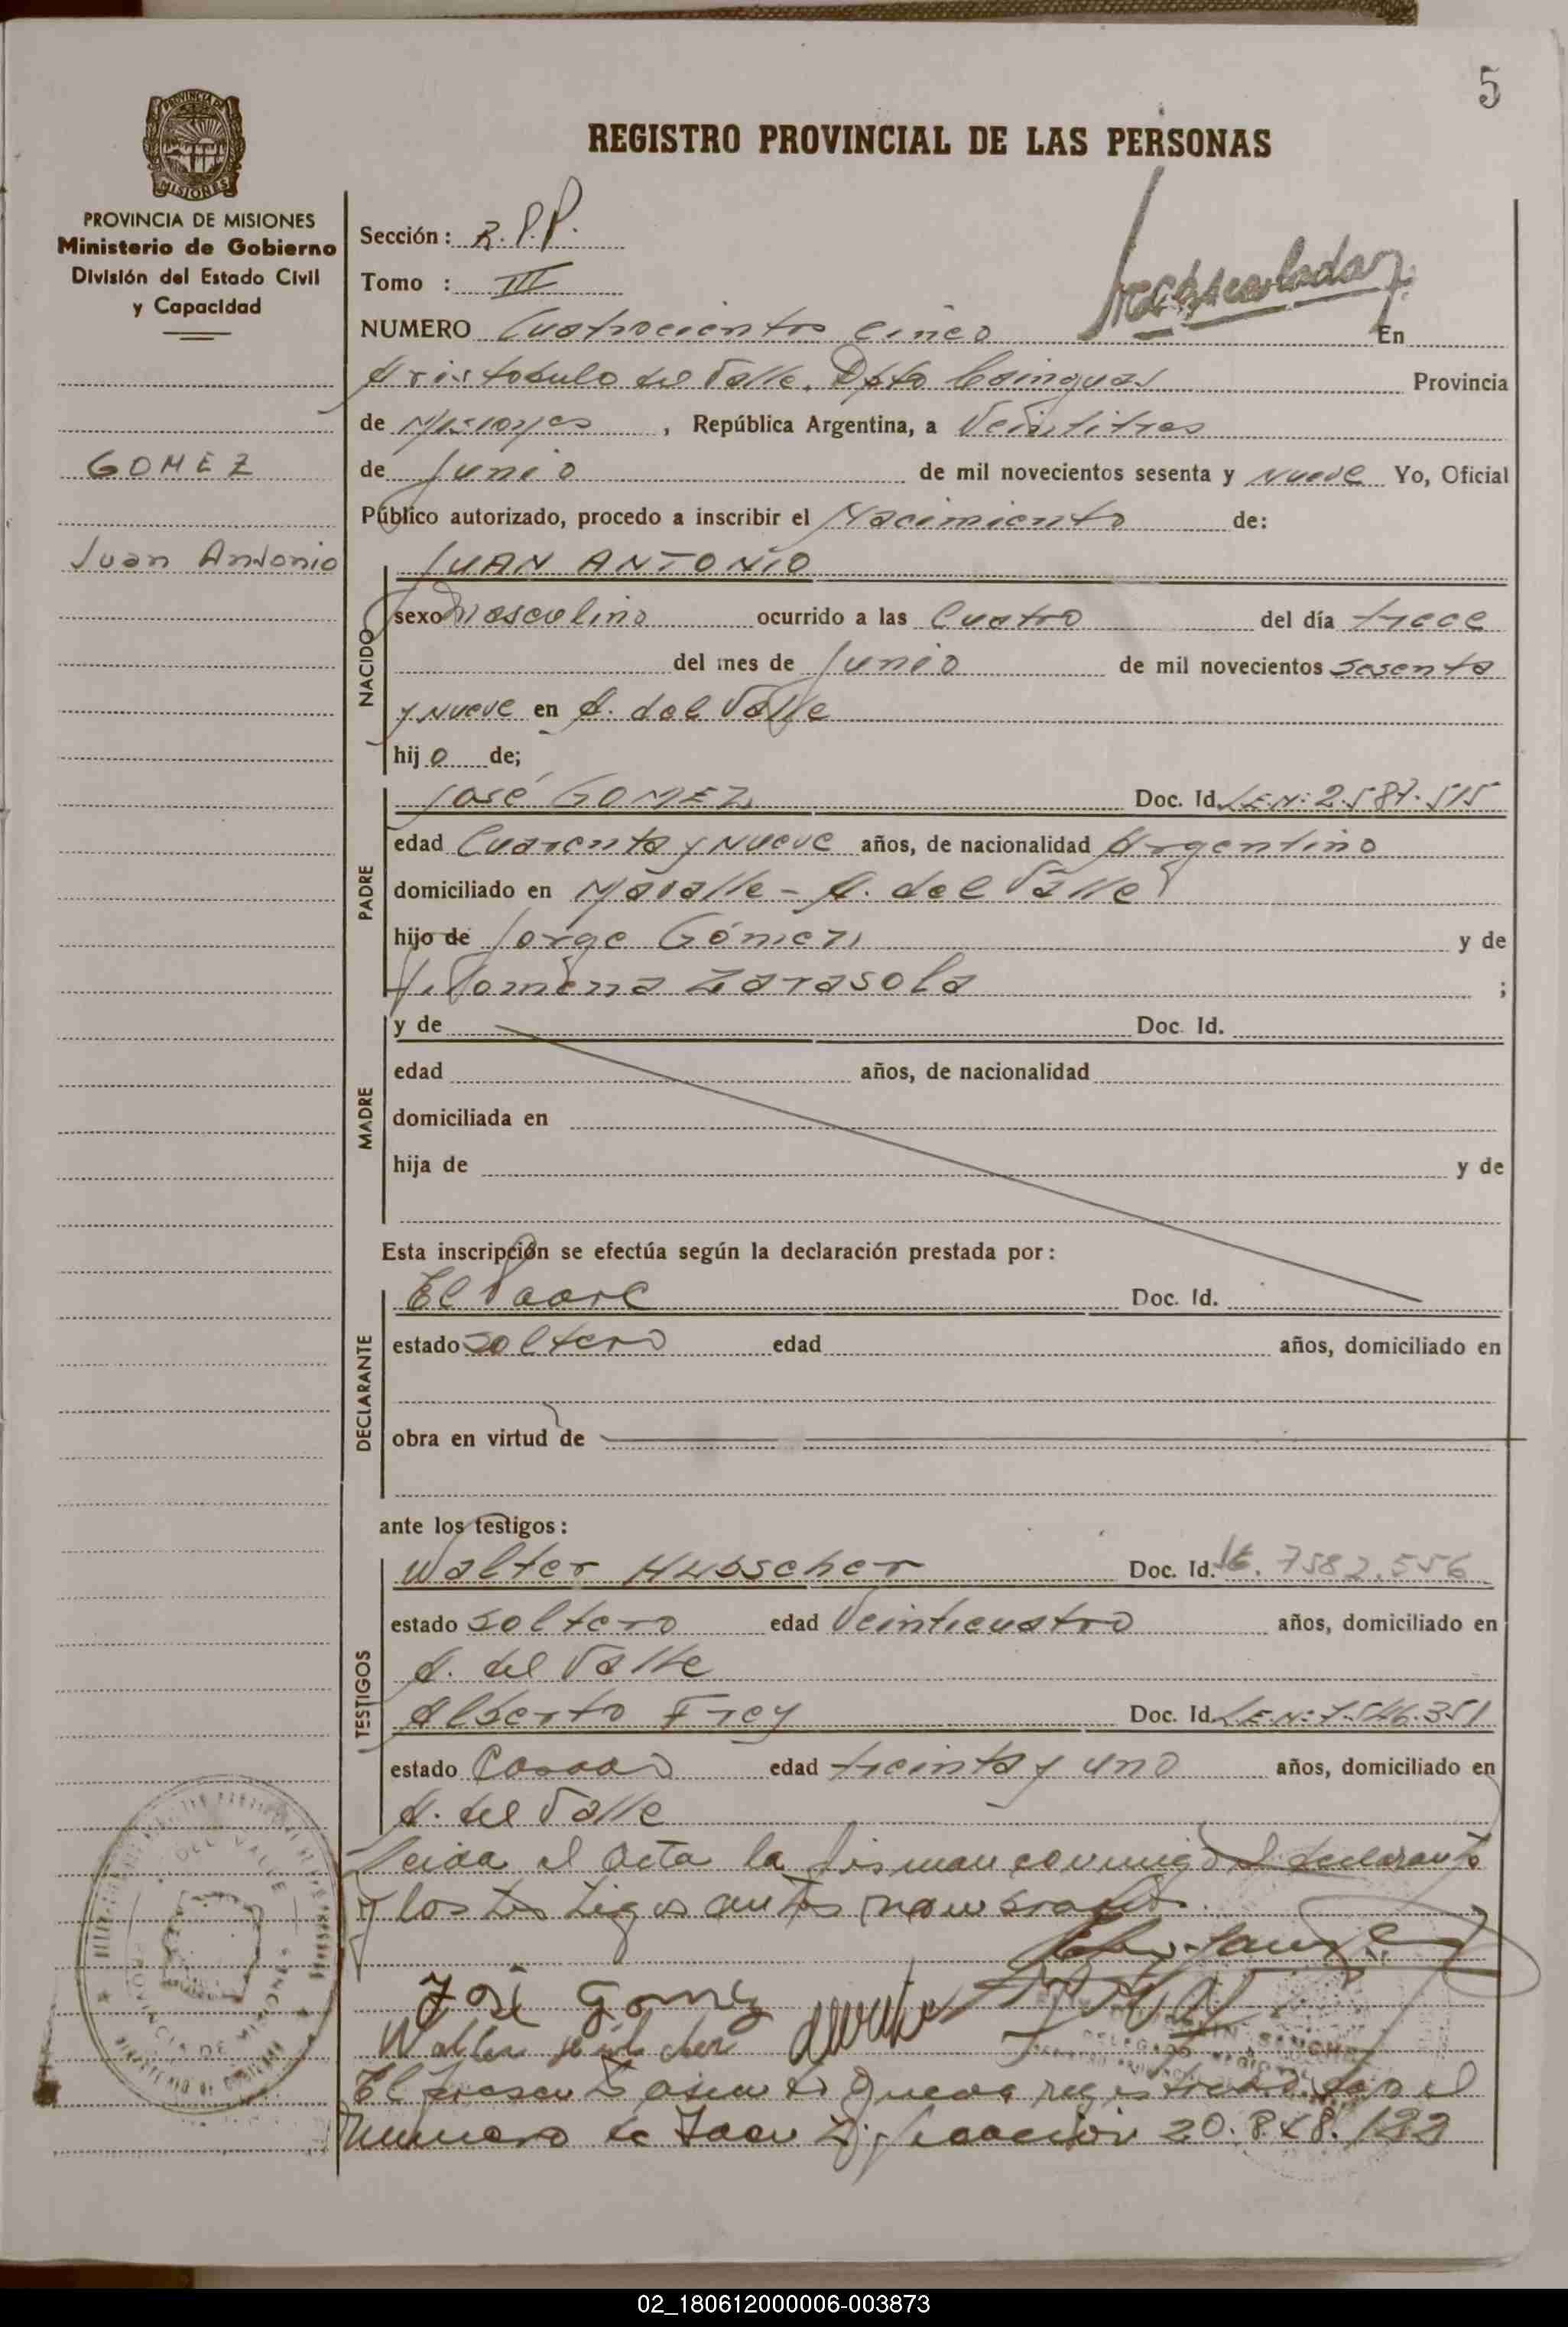 5
REGISTRO PROVINCIAL DE LAS PERSONAS
PROVINCIA DE MISIONES
PROVINCIA DE MISIONES
Ministerio de Gobierno
División del Estado Civil
y Capacidad
GOMEZ
Juan Antonio
Sección: R.P.P.
Tomo : III
NUMERO Cuatrocientos cinco En
Aristobulo del Valle. Dpto Cainguas Provincia
de Misiones, República Argentina, a Veintitres
de Junio de mil novecientos sesenta y nueve Yo, Oficial
Público autorizado, procedo a inscribir el Nacimiento de:
NACIDO
JUAN ANTONIO
sexo Masculino ocurrido a las Cuatro del día trece
del mes de Junio de mil novecientos sesenta
y nueve en A. del Valle
hijo de;
PADRE
José GOMEZ Doc. Id. L.E.N: 2.587.515
edad Cuarenta y nueve años, de nacionalidad Argentino
domiciliado en - A. del Valle
hijo de Jorge Gómez y de
Filomena Zarasola ;
MADRE
y de Doc. Id.
edad años, de nacionalidad
domiciliada en
hija de y de
Esta inscripción se efectúa según la declaración prestada por:
DECLARANTE
El Padre Doc. Id.
estado soltero edad años, domiciliado en
obra en virtud de
ante los testigos:
TESTIGOS
Walter Doc. Id. 7582.556
estado soltero edad Veinticuatro años, domiciliado en
A. del Valle
Alberto Frey Doc. Id. L.E.N: 7.546.351
estado Casado edad treinta y uno años, domiciliado en
A. del Valle
Leida el acta la firman conmigo el declarante
y los testigos antes nombrados.
José Gomez
Walter
El presente asiento queda registrado bajo el
Numero de Iden 20.8 8.122
DEL VALLE
PROVINCIA DE MISIONES
MINISTERIO DE GOBIERNO
02_180612000006-003873